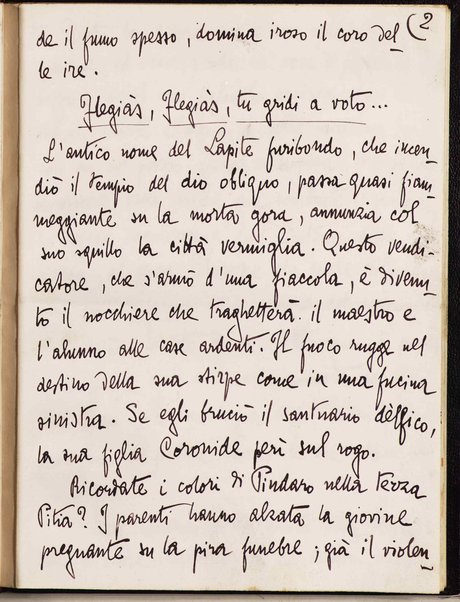 (2
de il fumo spesso, domina iroso il coro del
le ire.
Flegiàs, Flegiàs, tu gridi a voto...
L'antico nome del Lapite furibondo, che incen
diò il tempio del dio obliquo, passa quasi fiam
meggiante su la morta gora, annunzia col
suo squillo la città vermiglia. Questo vendi-
catore, che s'armò d'una fiaccola, è divenu
to il nocchiere che traghetterà il maestro e
l'alunno alle case ardenti. Il fuoco rugge nel
destino della sua stirpe come in una fucina
sinistra. Se egli bruciò il santuario dèlfico,
la sua figlia Coronide perì sul rogo.
Ricordate i colori di Pindaro nella terza
Pitia? I parenti hanno alzata la giovine
pregnante su la pira funebre; già il violen